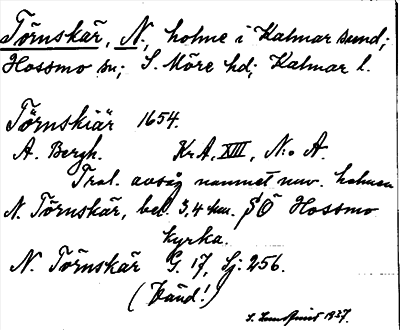 Törnskär, N., holme i Kalmar sund;
Hossmo sn; S. Möre hd; Kalmar l.
Törnskiär 1654.
A. Bergh. Kr A, XIII, N:o A.
Trol. avsåg namnet nuv. holmen
N. Törnskär, bel. 3,4 km. SÖ Hossmo
kyrka.
N. Törnskär G. 17, Sj: 256.
(Känd!)
S. 1937.